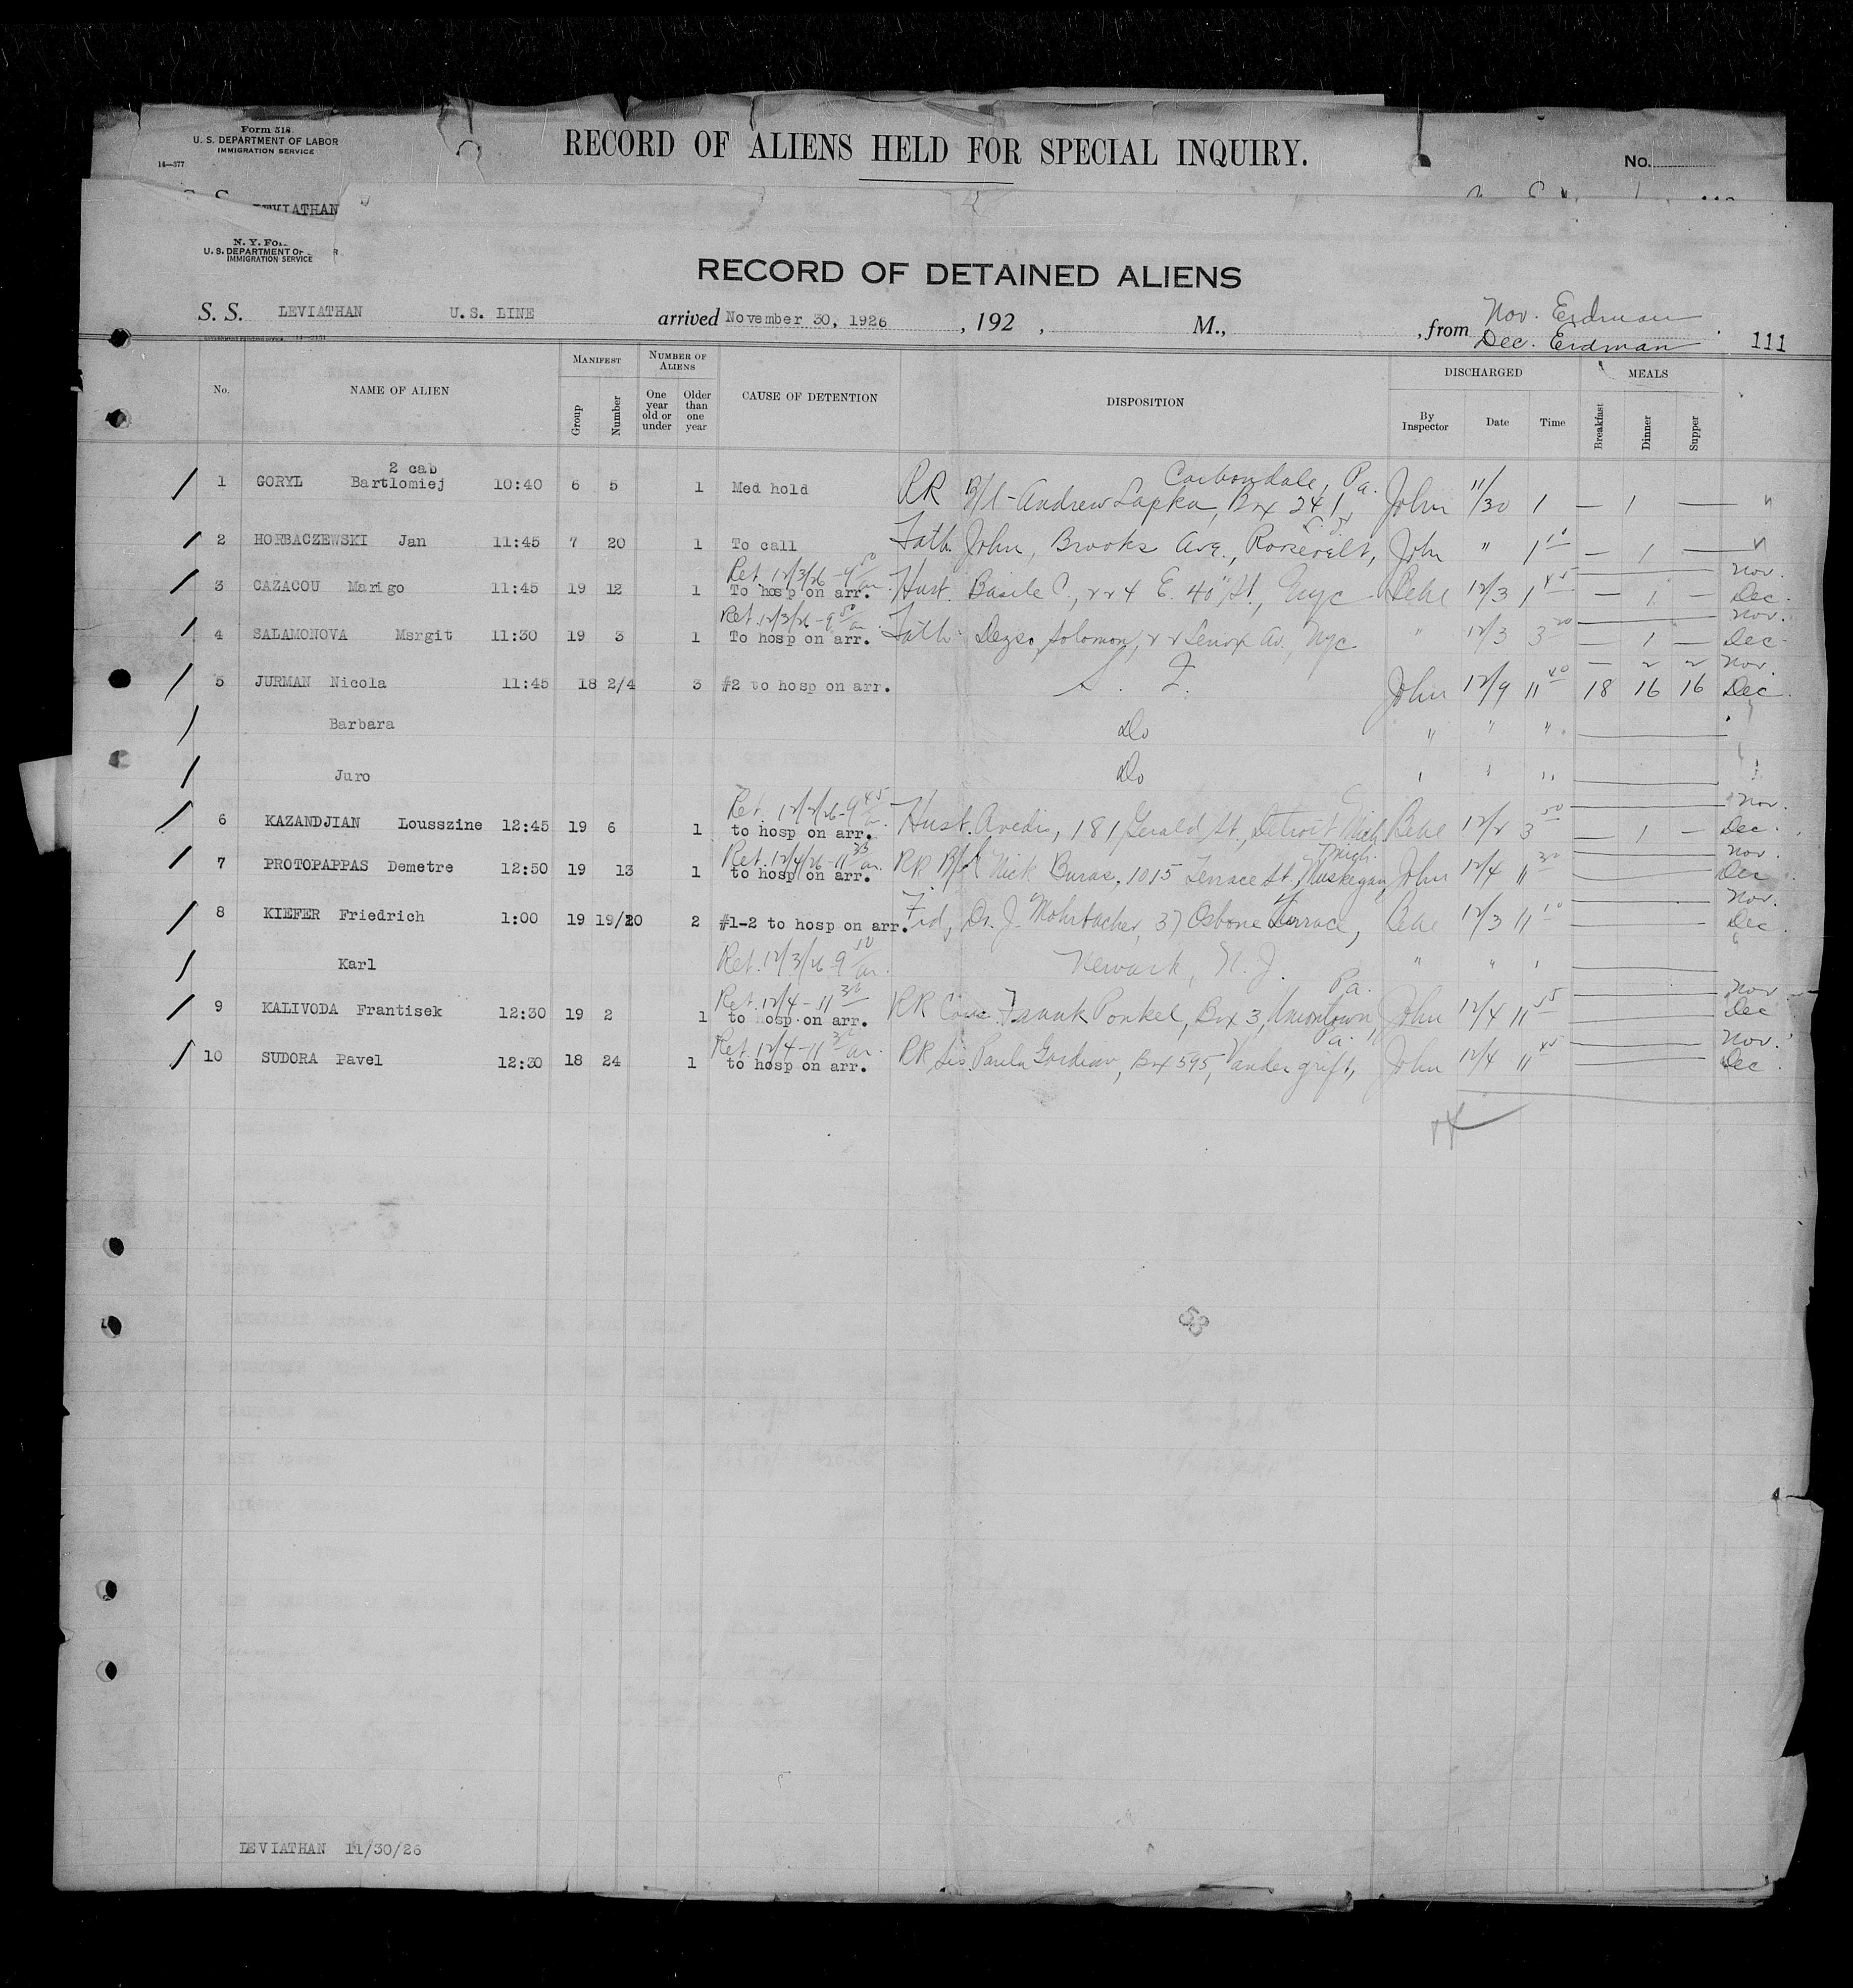 Form 518
U. S. DEPARTMENT OF LABOR
IMMIGRATION SERVICE
14—377
RECORD OF ALIENS HELD FOR SPECIAL INQUIRY.
No.
LEVIATHAN
N. Y. Fo
U. S. DEPARTMENT OF
IMMIGRATION SERVICE
RECORD OF DETAINED ALIENS
S. S. LEVIATHAN U. S. LINE arrived November 30, 1926 , 192 , M., , from Nov. Erdman
Dec. Erdman
111
No. NAME OF ALIEN MANIFEST Group Number NUMBER OF ALIENS One year old or under Older than one year CAUSE OF DETENTION DISPOSITION DISCHARGED By Inspector Date Time MEALS Breakfast Dinner Supper
2 cab Carbondale, Pa.
1 GORYL Bartlomiej 10:40 6 5 1 Med hold RR B/l - Andrew Lapka, Box 241, John 11/30 1 — 1 — "
2 HORBACZEWSKI Jan 11:45 7 20 1 To call Fath. John, Brooks Ave., Roosevelt, John " 1 10 — 1 — "
Ret. 12/3/26 - 9 Nov.
3 CAZACOU Marigo 11:45 19 12 1 To hosp on arr. Hust. Basile C., 224 E. 40" St., Nyc 12/3 1 45 — 1 — Dec.
Ret. 12/3/26 - 9 50 am Nov.
4 SALAMONOVA Msrgit 11:30 19 3 1 To hosp on arr. Fath. Dezso Solomon, 22 Lenox Av., Nyc " 12/3 3 20 — 1 — Dec.
— 2 2 Nov.
5 JURMAN Nicola 11:45 18 2/4 3 #2 to hosp on arr. S. I. John 12/9 11 40 18 16 16 Dec.
Barbara Do " " "
Juro Do " " "
Ret. 12/2/26 - 9 45 Nov.
6 KAZANDJIAN Lousszine 12:45 19 6 1 to hosp on arr. Hust. Avedis, 181 Gerald St., Detroit Mich 12/2 3 50 — 1 — Dec.
Ret. 12/4/26 - 11 am. Mich. Nov.
7 PROTOPAPPAS Demetre 12:50 19 13 1 to hosp on arr. RR Nick Buras, 1015 Terrace St., Muskegan, John 12/4 11 30 Dec
Nov.
8 KIEFER Friedrich 1:00 19 19/20 2 #1-2 to hosp on arr. Frd, Dr. J. Mohrbacher, 37 Osbone Terrace, 12/3 11 10 Dec.
Karl Ret. 12/3/26 9 50 am. Newark, N. J. " " "
Ret. 12/4 - 11 30 Pa. Nov
9 KALIVODA Frantisek 12:30 19 2 1 to hosp on arr. RR Cous. Frank Ponkel, Box 3, Uniontown, John 12/4 11 55 Dec
Ret. 12/4 - 11 am. Pa. Nov.
10 SUDORA Pavel 12:30 18 24 1 to hosp on arr. RR Sis. Paula Gordian, Box 595, Vandergrift, John 12/4 11 45 Dec.
LEVIATHAN 11/30/26